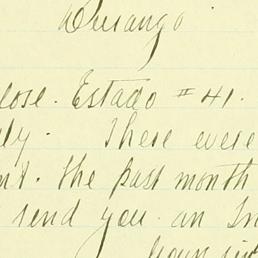 Durango
close. Estado #41.
ly. There were
nt. the past month
send you an In